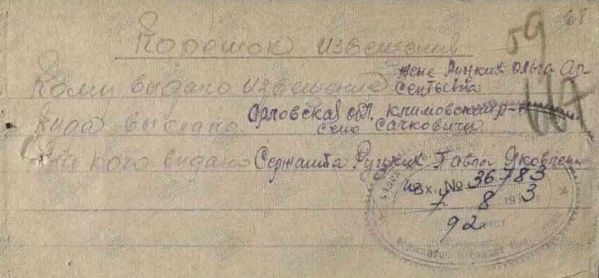 59 68
Корешок извещения
Кому выдано извещение жене Руцких Ольга Ар-
сентьевна
Куда выслано Орловская обл. Климовский р-н
село Сачковичи
На кого выдано Сержанта Руцких Павла Яковлеви
Вх. № 36783
7 8 1943
92 лист